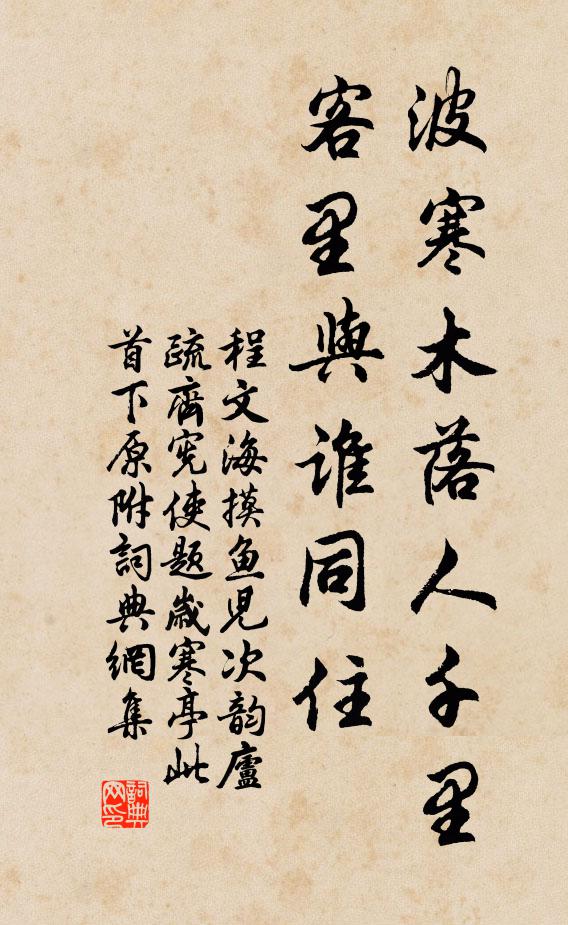 波寒木落人千里
客里與誰同住
程文海摸魚児次韵廬
疏齊宪使題歲寒亭此
首下原附詞典網集
詞典
网印